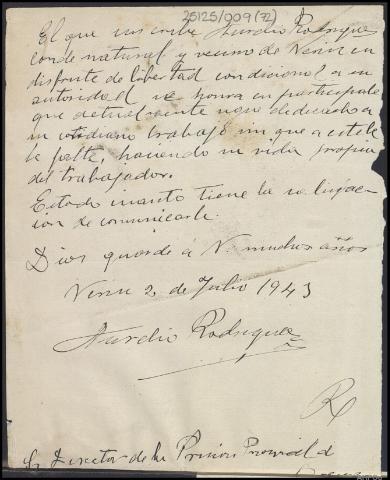 25125/009(72)
El que suscribe Aurelio Rodriguez
conde natural y vecino de Verin en
disfrute de libertad condicional a su
autoridad se honra en participarle
que actualmente sigo dedicado a
mi cotidiano trabajo sin que a este le
le falte, haciendo mi vida propia
del trabajador.
Es todo cuanto tiene la obligacion
cion de comunicarle.
Dios guarde a V. muchos años
Verin 2 de Julio 1943
Aurelio Rodriguez
R
Sr Director de la Prision Provincial d